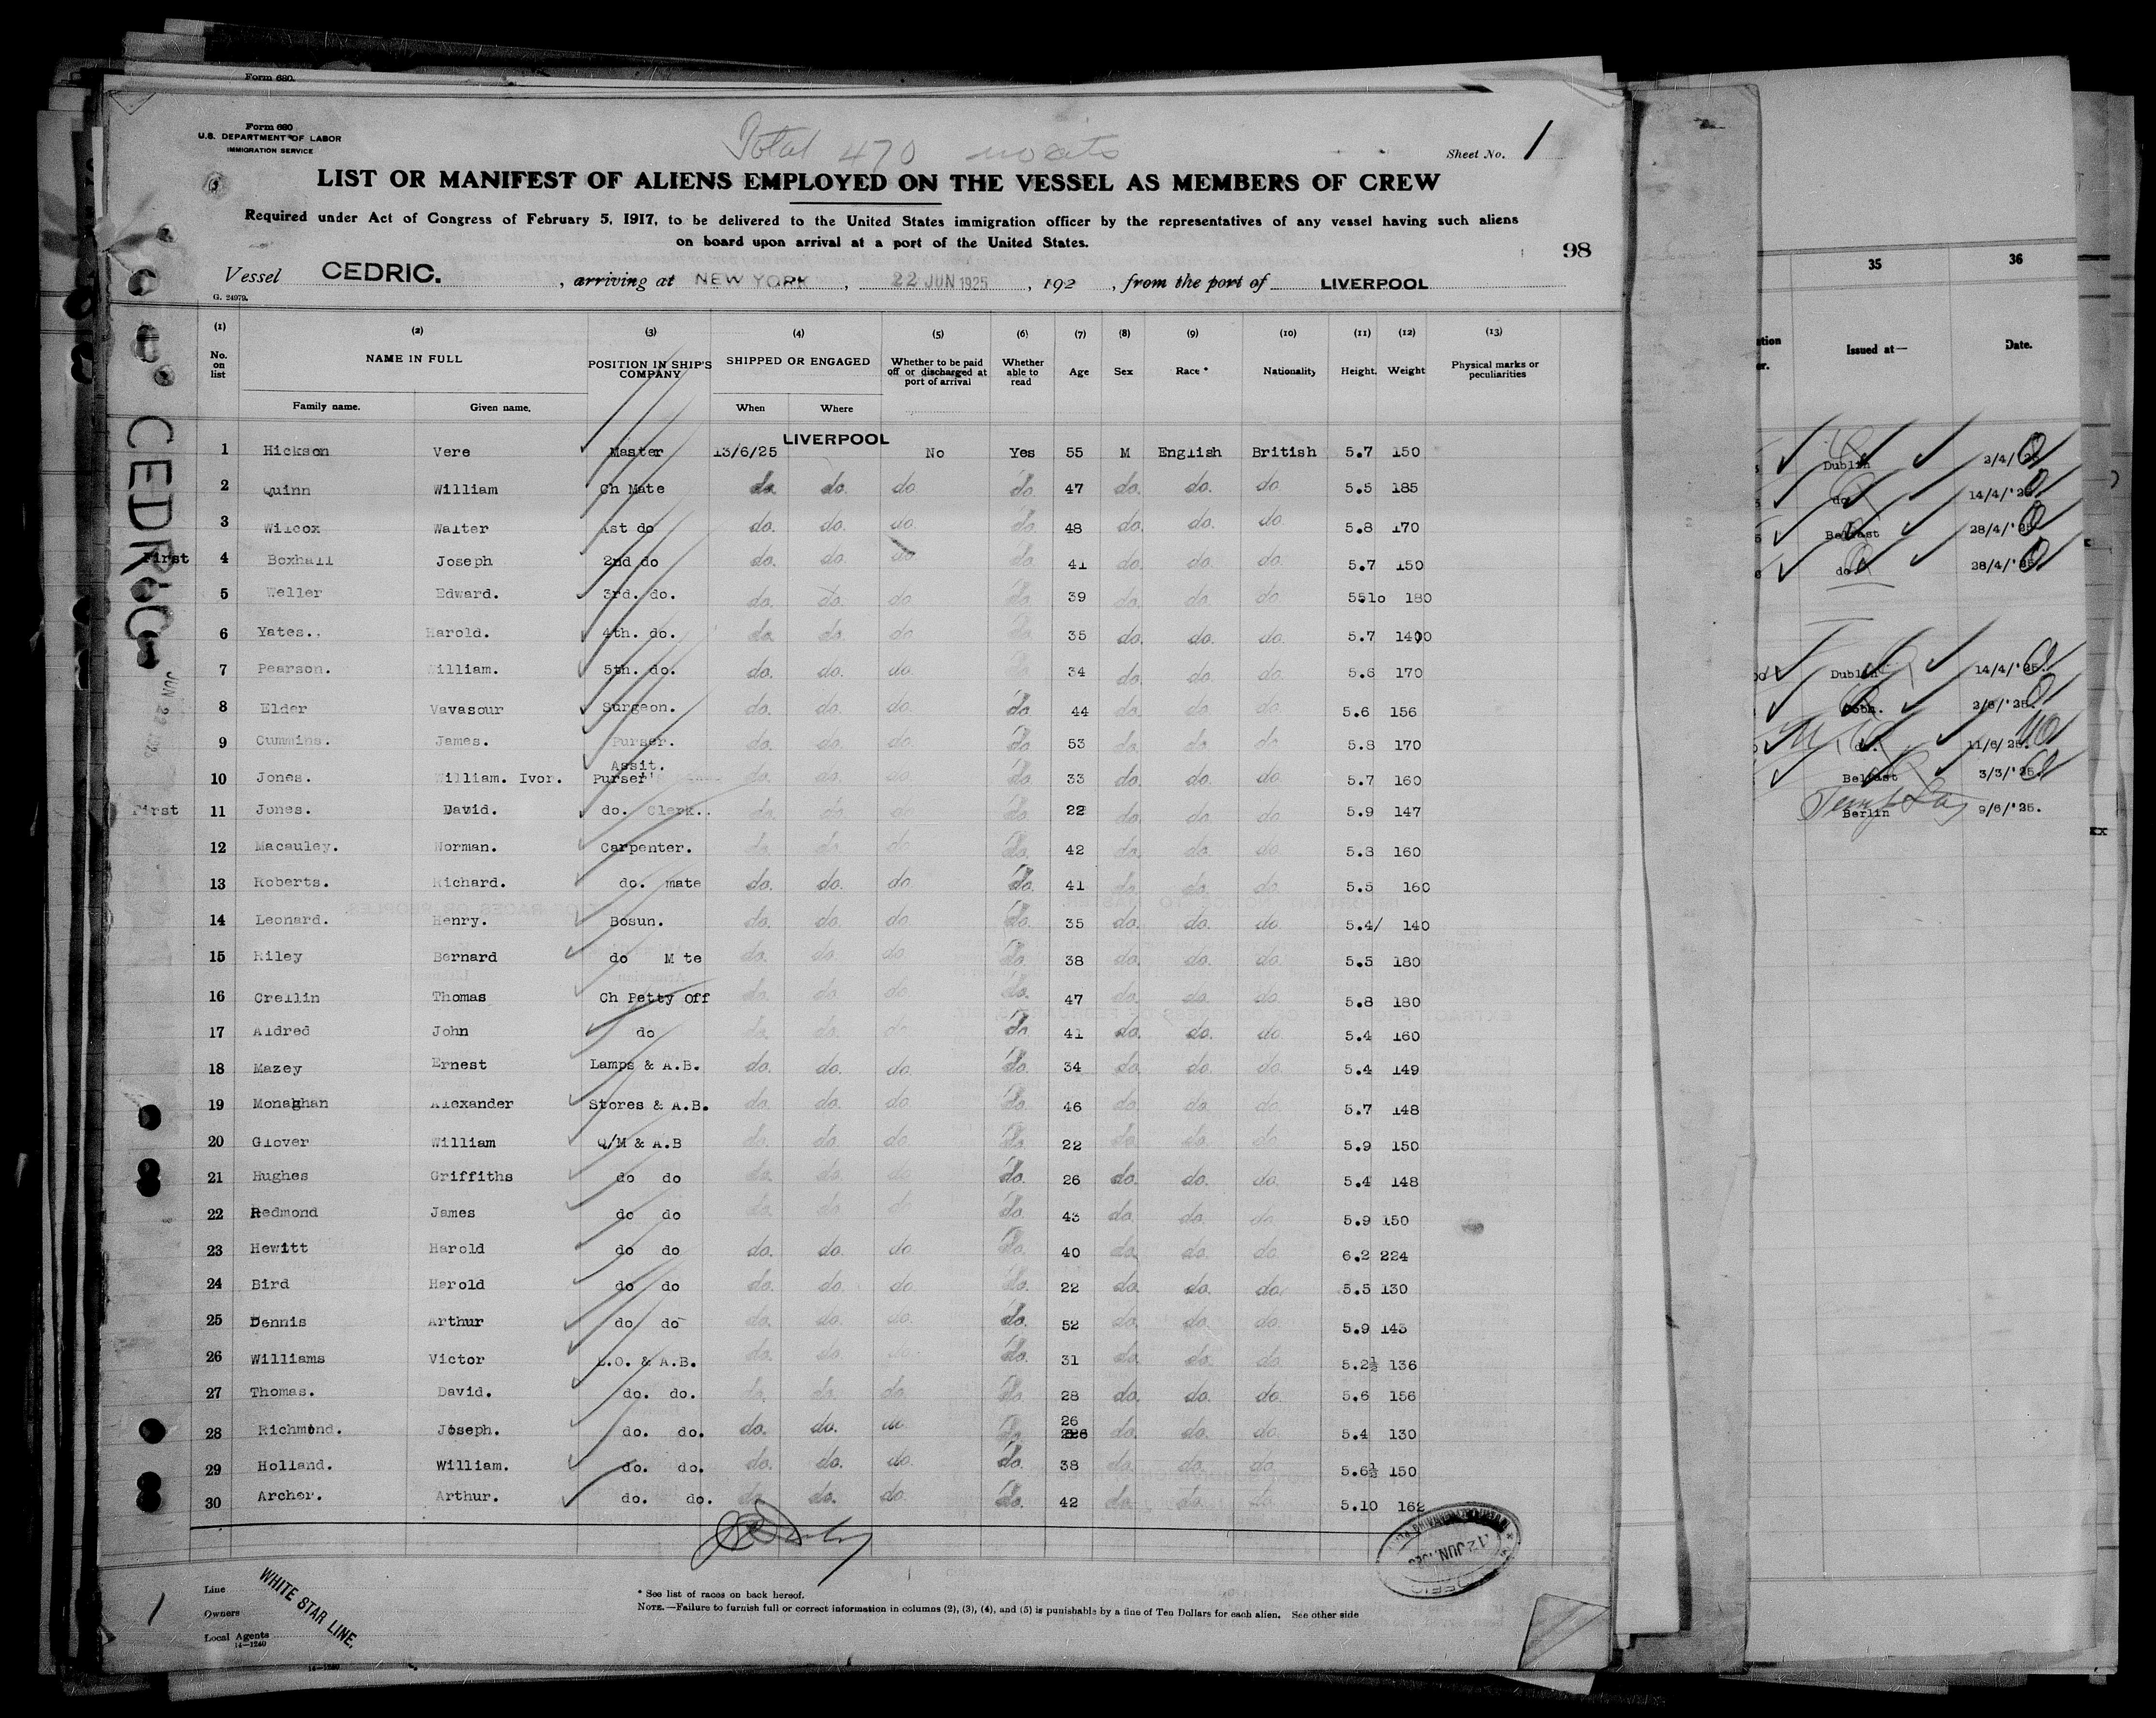 Form 680.
Form 680
U.S. DEPARTMENT OF LABOR
IMMIGRATION SERVICE
Total 470
Sheet No. 1
LIST OR MANIFEST OF ALIENS EMPLOYED ON THE VESSEL AS MEMBERS OF CREW
Required under Act of Congress of February 5, 1917, to be delivered to the United States immigration officer by the representatives of any vessel having such aliens
on board upon arrival at a port of the United States.
98
Vessel CEDRIC. , arriving at NEW YORK , 22 JUN 1925 , 192 , from the port of LIVERPOOL
G. 24979.
(1) (2) (3) (4) (5) (6) (7) (8) (9) (10) (11) (12) (13)
No. on list NAME IN FULL POSITION IN SHIP'S COMPANY SHIPPED OR ENGAGED Whether to be paid off or discharged at port of arrival Whether able to read Age Sex Race * Nationality Height. Weight Physical marks or peculiarities
Family name. Given name. When Where
LIVERPOOL
1 Hickson Vere Master 13/6/25 No Yes 55 M English British 5.7 150
2 Quinn William Ch Mate do. do. do do. 47 do. do. do 5.5 185
3 Wilcox Walter 1st do do. do. do. do. 48 do. do. do. 5.8 170
First 4 Boxhall Joseph 2nd do do. do. do do. 41 do. do. do. 5.7 150
5 Weller Edward. 3rd. do. do. do. do do. 39 do. do. do 5510 180
6 Yates. Harold. 4th. do. do. do. do do. 35 do. do. do. 5.7 1400
7 Pearson. William. 5th. do. do. do. do. 34 do. do. do. 5.6 170
8 Elder Vavasour Surgeon. do. do. do. do. 44 do. do. do 5.6 156
9 Cummins. James. Purser. do. do. do. do. 53 do. do. do 5.8 170
10 Jones. William. Ivor. Assit. Purser's do. do. do. do. 33 do. do. do. 5.7 160
First 11 Jones. David. do. Clerk.. do. do. do do. 22 do. do. do. 5.9 147
12 Macauley. Norman. Carpenter. do. do. do do. 42 do. do. do 5.8 160
13 Roberts. Richard. do. mate do. do. do do. 41 do. do. do. 5.5 160
14 Leonard. Henry. Bosun. do. do. do do. 35 do. do. do. 5.4/ 140
15 Riley Bernard do M te do. do. do do. 38 do. do. do. 5.5 180
16 Crellin Thomas Ch Petty Off do. do. do do. 47 do. do. do. 5.8 180
17 Aldred John do do. do. do do. 41 do. do. do. 5.4 160
18 Mazey Ernest Lamps & A.B. do. do. do. do. 34 do. do. do. 5.4 149
19 Monaghan Alexander Stores & A.B. do. do. do do. 46 do. do. do. 5.7 148
20 Glover William Q/M & A.B do. do. do do. 22 do. do. do. 5.9 150
21 Hughes Griffiths do do do. do. do do. 26 do. do. do. 5.4 148
22 Redmond James do do do. do. do do. 43 do. do. do. 5.9 150
23 Hewitt Harold do do do. do. do. do. 40 do. do. do. 6.2 224
24 Bird Harold do do do. do. do. do. 22 do. do. do. 5.5 130
25 Dennis Arthur do do do. do. do. do. 52 do. do. do. 5.9 143
26 Williams Victor L.O. & A.B. do. do. do. 31 do. do. do. 5.2½ 136
27 Thomas. David. do. do. do. do. do. do. 28 do. do. do. 5.6 156
28 Richmond. Joseph. do. do. do. do. do. do. 26 do. do. do. 5.4 130
29 Holland. William. do. do. do. do. do. do. 38 do. do. do. 5.6½ 150
30 Archer. Arthur. do. do. do. do. do. do. 42 do. do. do. 5.10 162
12 JUN.
Line
Owners
Local Agents
14—1240
WHITE STAR LINE.
* See list of races on back hereof.
NOTE.—Failure to furnish full or correct information in columns (2), (3), (4), and (5) is punishable by a fine of Ten Dollars for each alien. See other side
1
14—1240
CEDRIC
JUN 22 1925
35 36
Issued at— Date.
Dublin 2/4/'25
do 14/4/'25
Belfast 28/4/'25
do 28/4/'25
Dublin 14/4/'25.
Cobh. 2/6/'25.
do. 11/6/'25.
Belfast 3/3/'25.
Berlin 9/6/'25.
xx